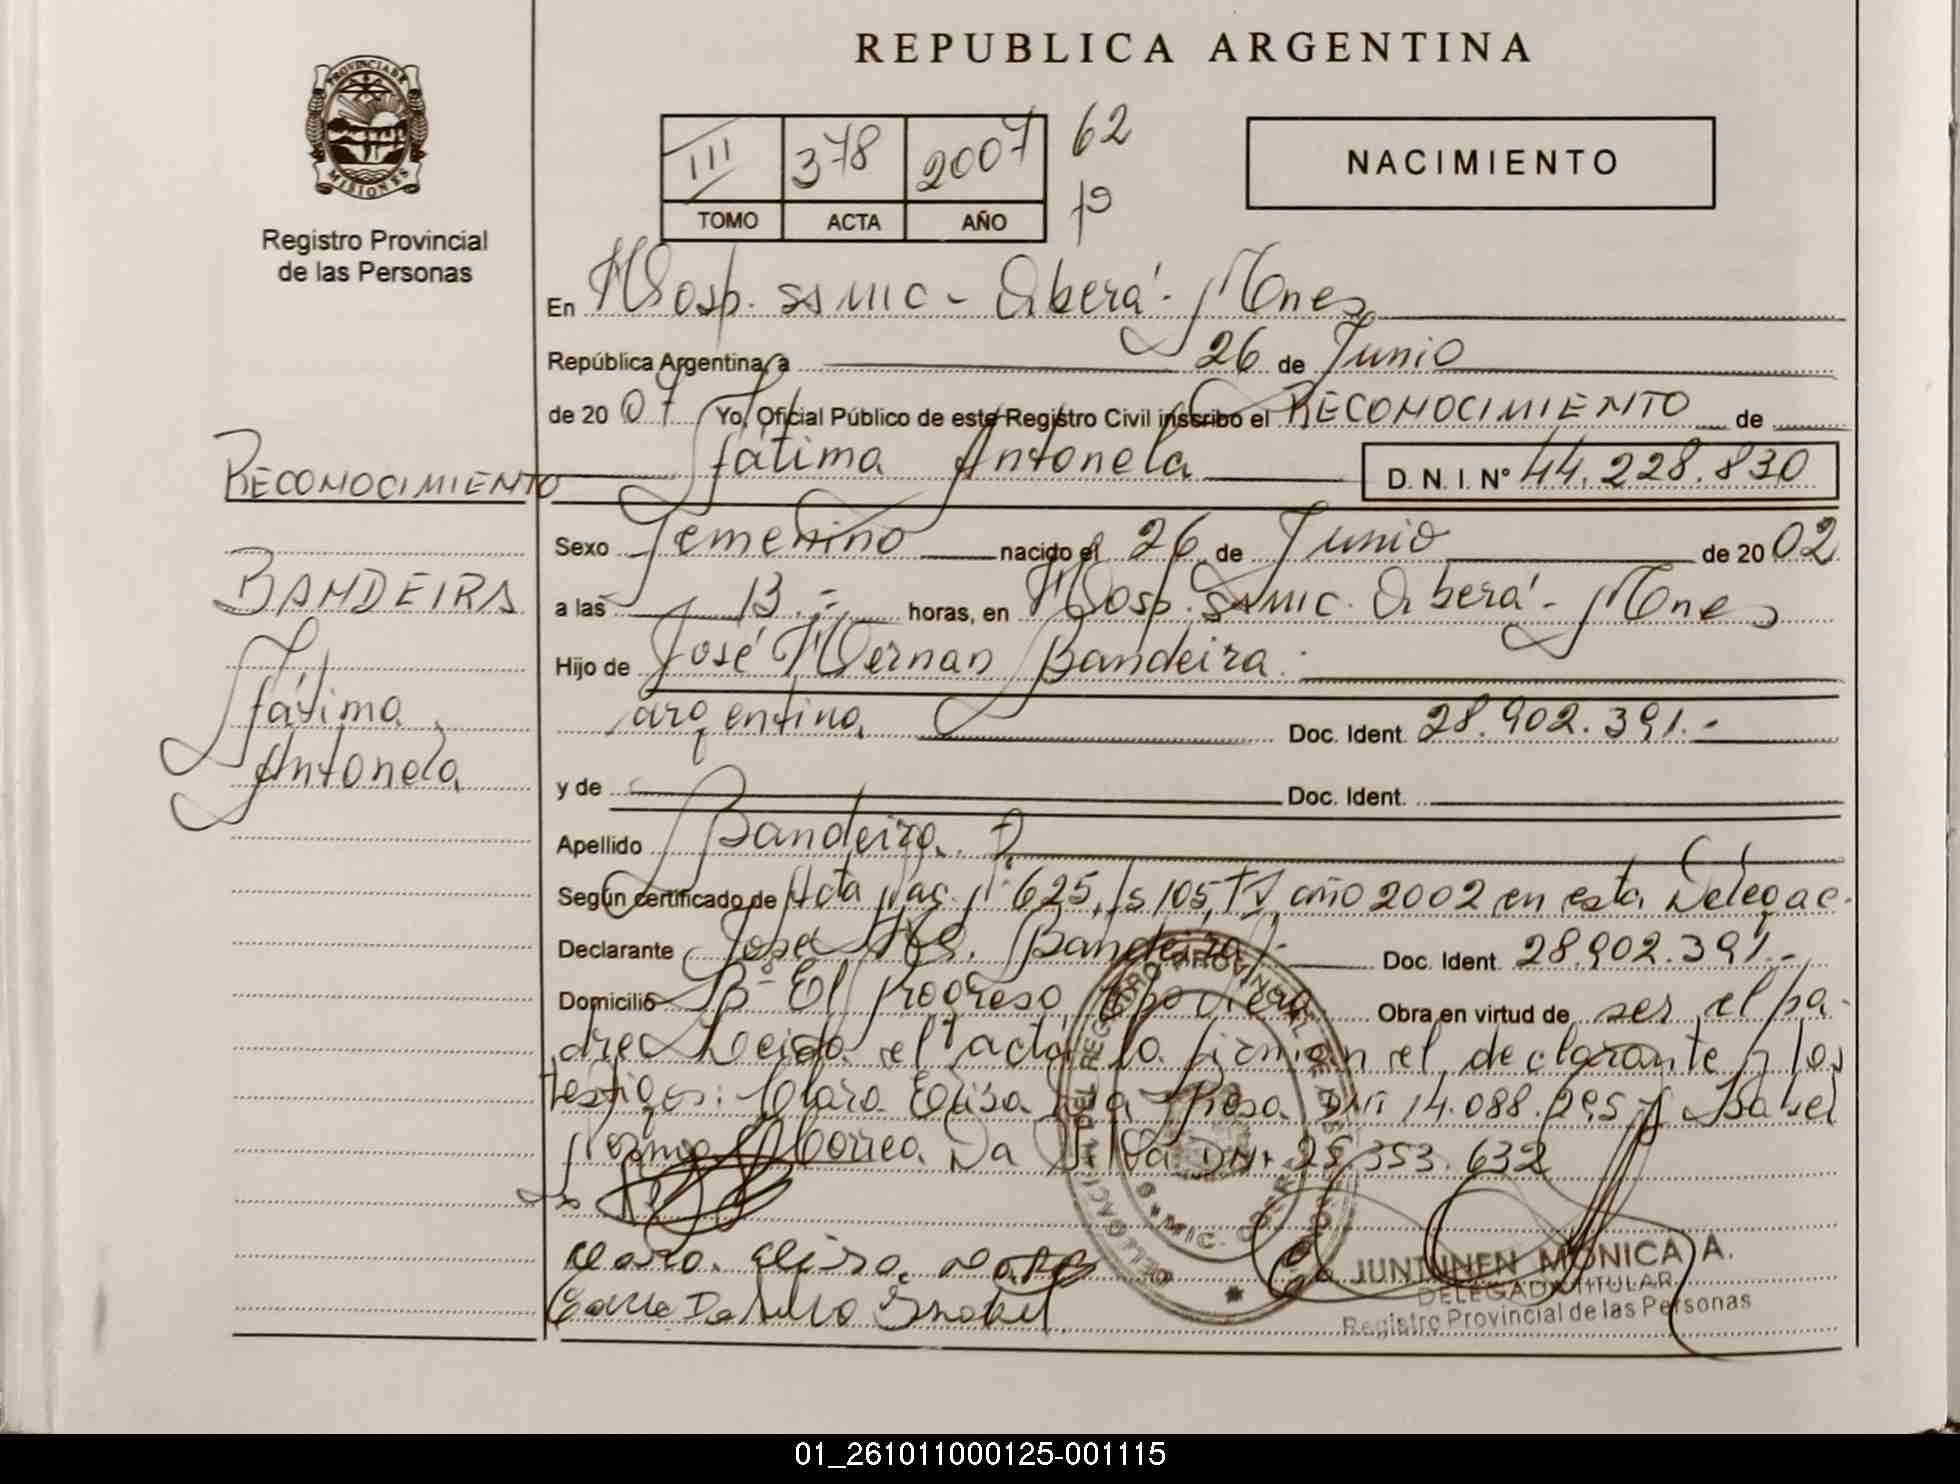 REPUBLICA ARGENTINA
PROVINCIA DE
MISIONES
Registro Provincial
de las Personas
III 378 2007 62
TOMO ACTA AÑO
NACIMIENTO
En Hosp. SAMIC - Oberá - Mnes
República Argentina, a 26 de Junio
de 2007 Yo, Oficial Público de este Registro Civil inscribo el RECONOCIMIENTO de
Fátima Antonela D. N. I. N° 44.228.830
RECONOCIMIENTO
BANDEIRA
Fátima
Antonela
Sexo Femenino nacido el 26 de Junio de 2002
a las 13.= horas, en Hosp. SAMIC. Oberá - Mnes
Hijo de José Hernan Bandeira
argentina Doc. Ident. 28.902.391.-
y de Doc. Ident.
Apellido Bandeira
Según certificado de Acta Nac. N° 625, fs 105, año 2002 en esta Delegac.
Declarante José Bandeira.- Doc. Ident. 28.902.391.-
Domicilio B° El Progreso Obra en virtud de ser el pa-
dre Leida el acta la firman el declarante y los
testigos: Clara Elisa Da Rosa DNI 14.088.295 y Isabel
Norma Correa Da Silva DNI 25.353.632
JUNTUNEN MONICA A.
DELEGADA TITULAR
Registro Provincial de las Personas
01_261011000125-001115